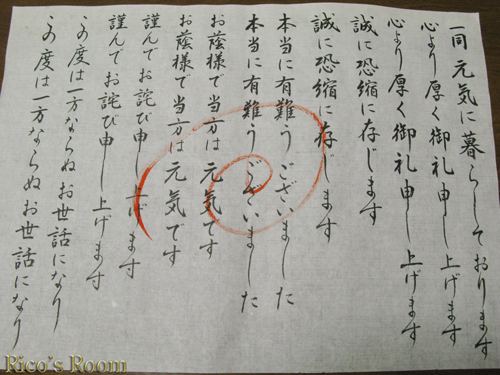 一同元気に暮らしております
心より厚く御礼申し上げます
心より厚く御礼申し上げます
誠に恐縮に存じます
誠に恐縮に存じます
本当に有難うございました
本当に有難うございました
お蔭様で当方は元気です
お蔭様で当方は元気です
謹んでお詫び申し上げます
謹んでお詫び申し上げます
この度は一方ならぬお世話になり
この度は一方ならぬお世話になり
Rico's Room